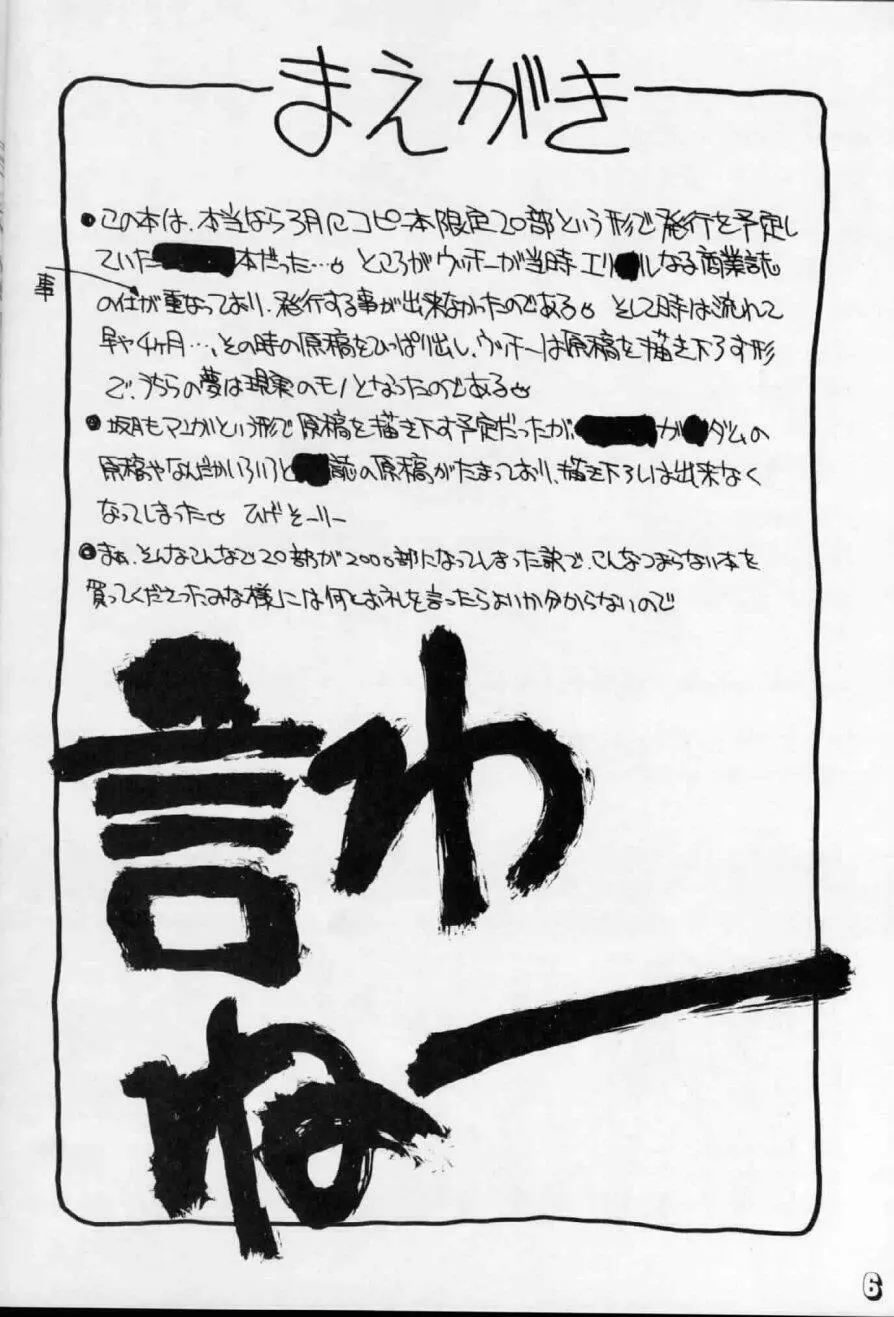 まえがき
●この本は、本当なら3月にコピー本限定20部という形で発行を予定し
ていた本だった…。ところがウッキーが当時エリルなる商業誌
事
の仕が重なっており、発行する事が出来なかったのである。そして時は流れて
早や4ヶ月…、その時の原稿をひっぱり出し、ウッキーは原稿を描き下ろす形
で、うちらの夢は現実のモノとなったのである。
●坂月もマンガという形で原稿を描き下す予定だったが、がダムの
原稿やなんだかいろいろと誌の原稿がたまっており、描き下ろしは出来なく
なってしまった。ひげそーりー
●まぁ、そんなこんなで20部が2000部になってしまった訳で、こんなつまらない本を
買ってくださったみな様には何とお礼を言ったらよいか分からないので
言わ
ねー
6